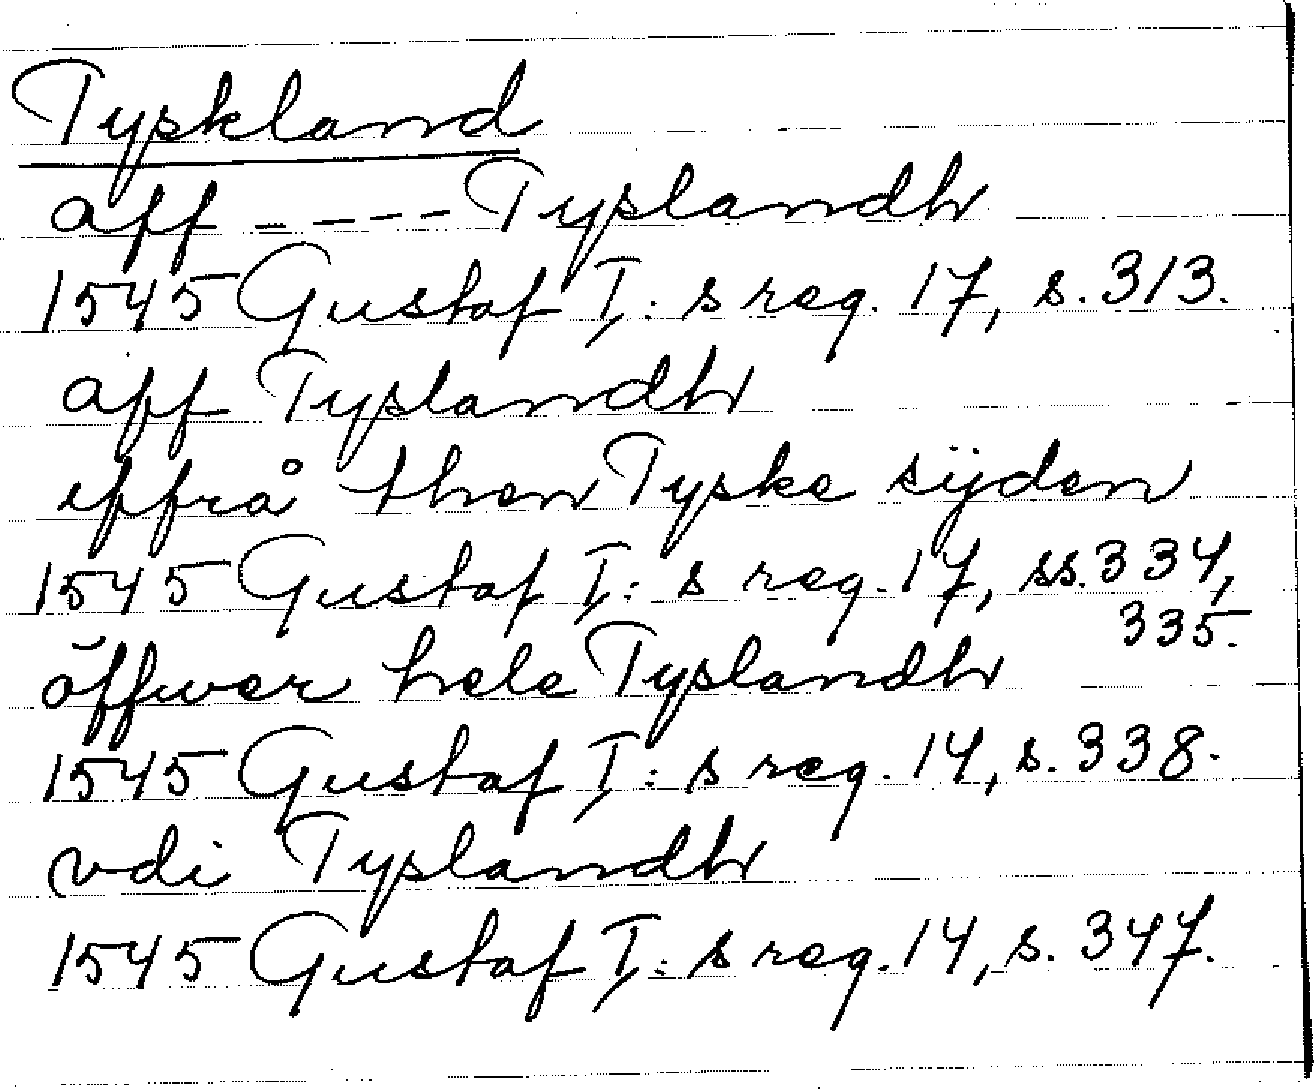 Tyskland
aff ---- Tyslandh
1545 Gustaf I: s reg. 17, s. 313.
aff Tyslandh
iffrå then Tyske sijden
1545 Gustaf I: s reg. 17, ss. 334,
335.
öffwer hele Tyslandh
1545 Gustaf I: s reg. 14, s. 338.
vdi Tyslandh
1545 Gustaf I: s reg. 14, s. 347.